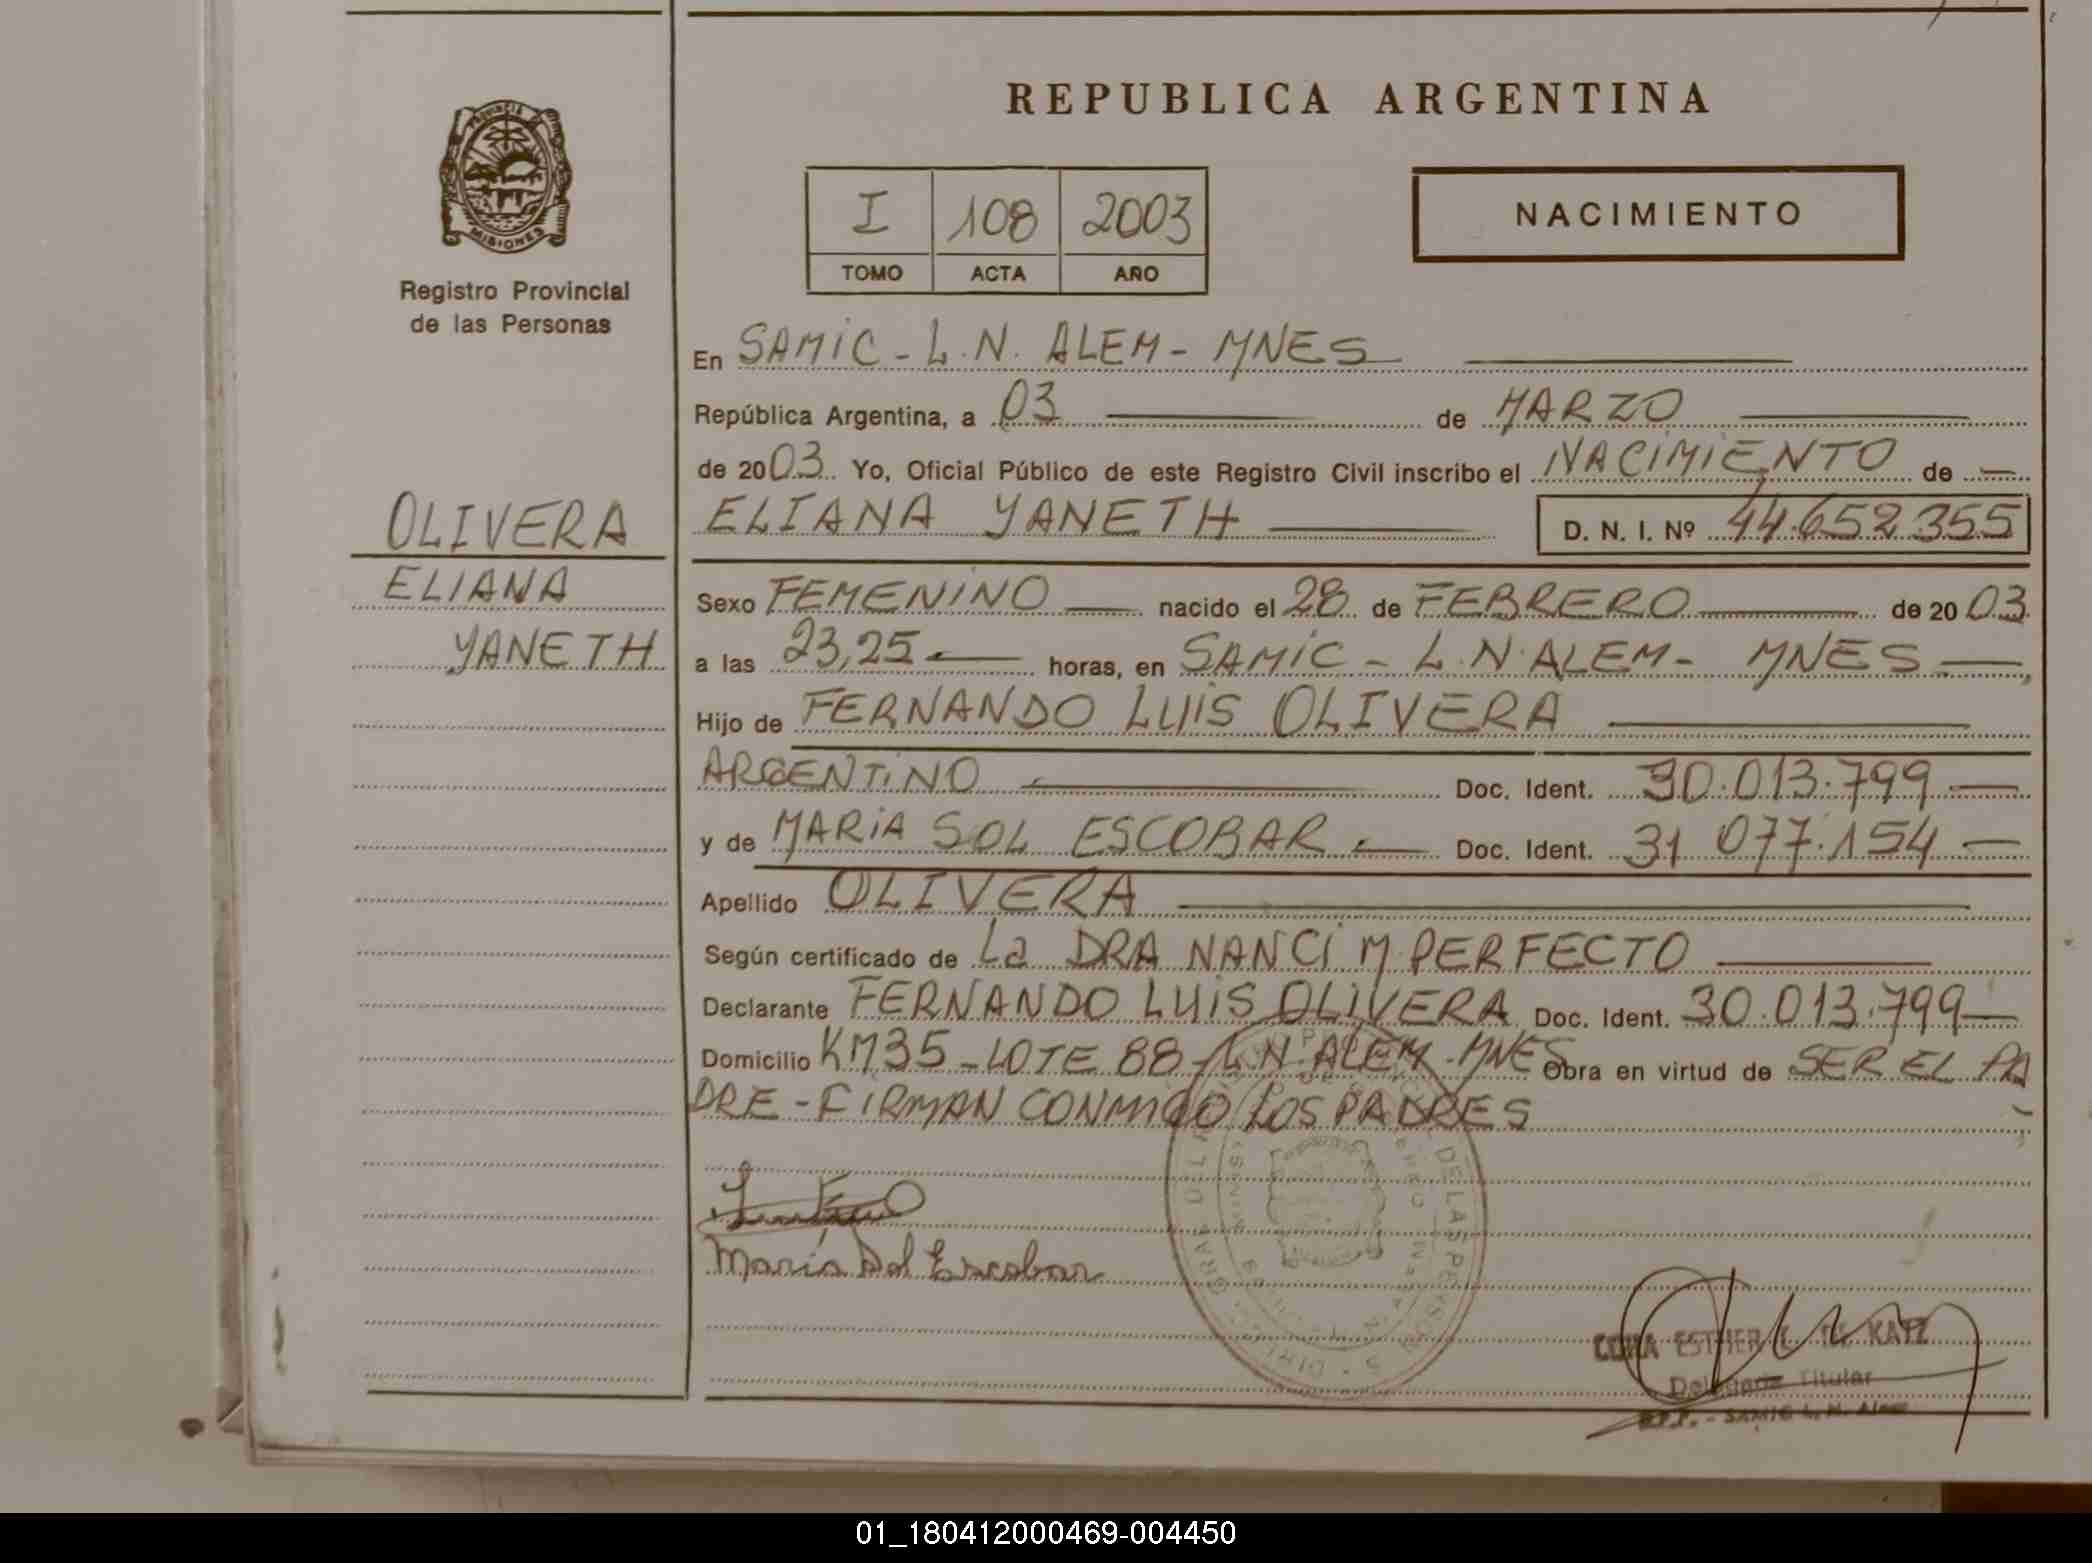 REPUBLICA ARGENTINA
PROVINCIA
MISIONES
Registro Provincial
de las Personas
I 108 2003
TOMO ACTA AÑO
NACIMIENTO
En SAMIC - L.N. ALEM - MNES
República Argentina, a 03 de MARZO
de 2003 Yo, Oficial Público de este Registro Civil inscribo el NACIMIENTO de
OLIVERA
ELIANA
YANETH
ELIANA YANETH D. N. I. Nº 44.652.355
Sexo FEMENINO nacido el 28 de FEBRERO de 2003
a las 23,25 horas, en SAMIC - L.N. ALEM - MNES
Hijo de FERNANDO LUIS OLIVERA
ARGENTINO Doc. Ident. 30.013.799
y de MARIA SOL ESCOBAR Doc. Ident. 31 077.154
Apellido OLIVERA
Según certificado de La DRA NANCI M PERFECTO
Declarante FERNANDO LUIS OLIVERA Doc. Ident. 30.013.799
Domicilio KM35 - LOTE 88 - L.N. ALEM - MNES Obra en virtud de SER EL PA
DRE - FIRMAN CONMIGO LOS PADRES
María Sol Escobar
ESTHER KATZ
Delegada Titular
R.P.P. - SAMIC L. N. Alem
01_180412000469-004450